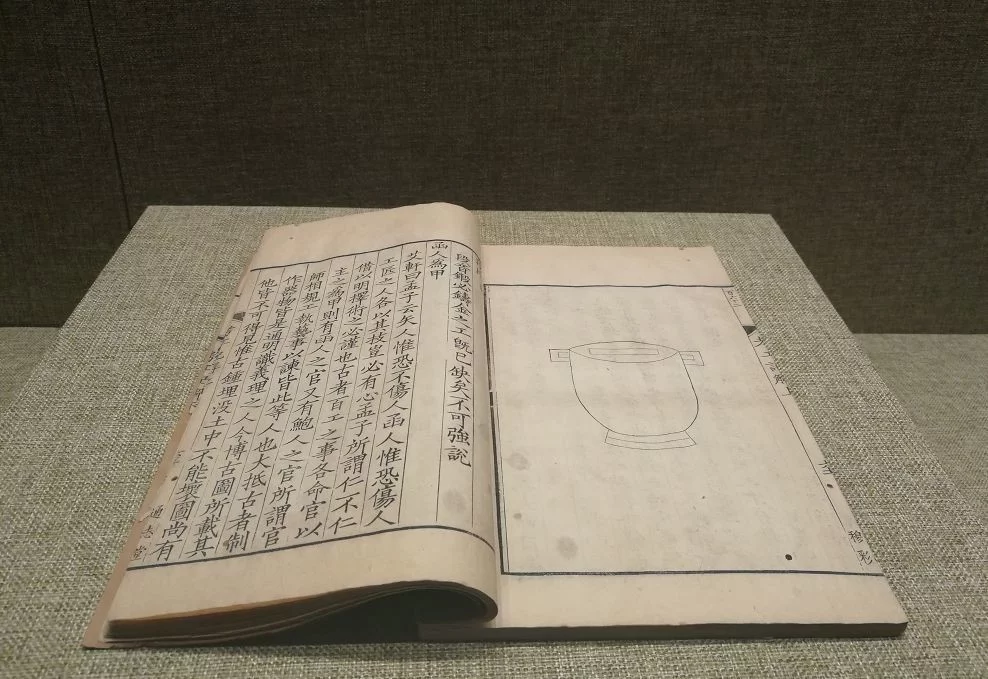 段音鍛必鑄金之工旣已缺矣不可強說
函人為甲
艾軒曰孟子云矢人惟恐不傷人函人惟恐傷人
工匠之人各以其技豈必有心孟子所謂仁不仁
借以明擇術之必謹也古者百工之事各命官以
主之為甲則有函人之官又有鮑人之官所謂官
師相規工執藝事以諫皆此等人也大抵古者制
作器物皆是通明識義理之人今博古圖所載其
他皆不可得見惟古鍾埋没土中不能壞圖尚有
通志堂
穆彩